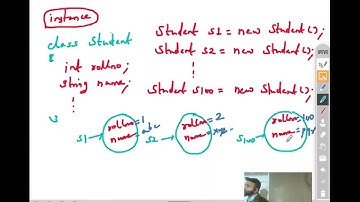 instance
class Student
{
int rollno;
string name;
⋮
}
Student S1 = new Student();
Student S2 = new Student();
⋮
Student S100 = new Student();
S1 → rollno = 1
name = abc
S2 → rollno = 2
name = xyz
S100 → rollno = 100
name = pqr